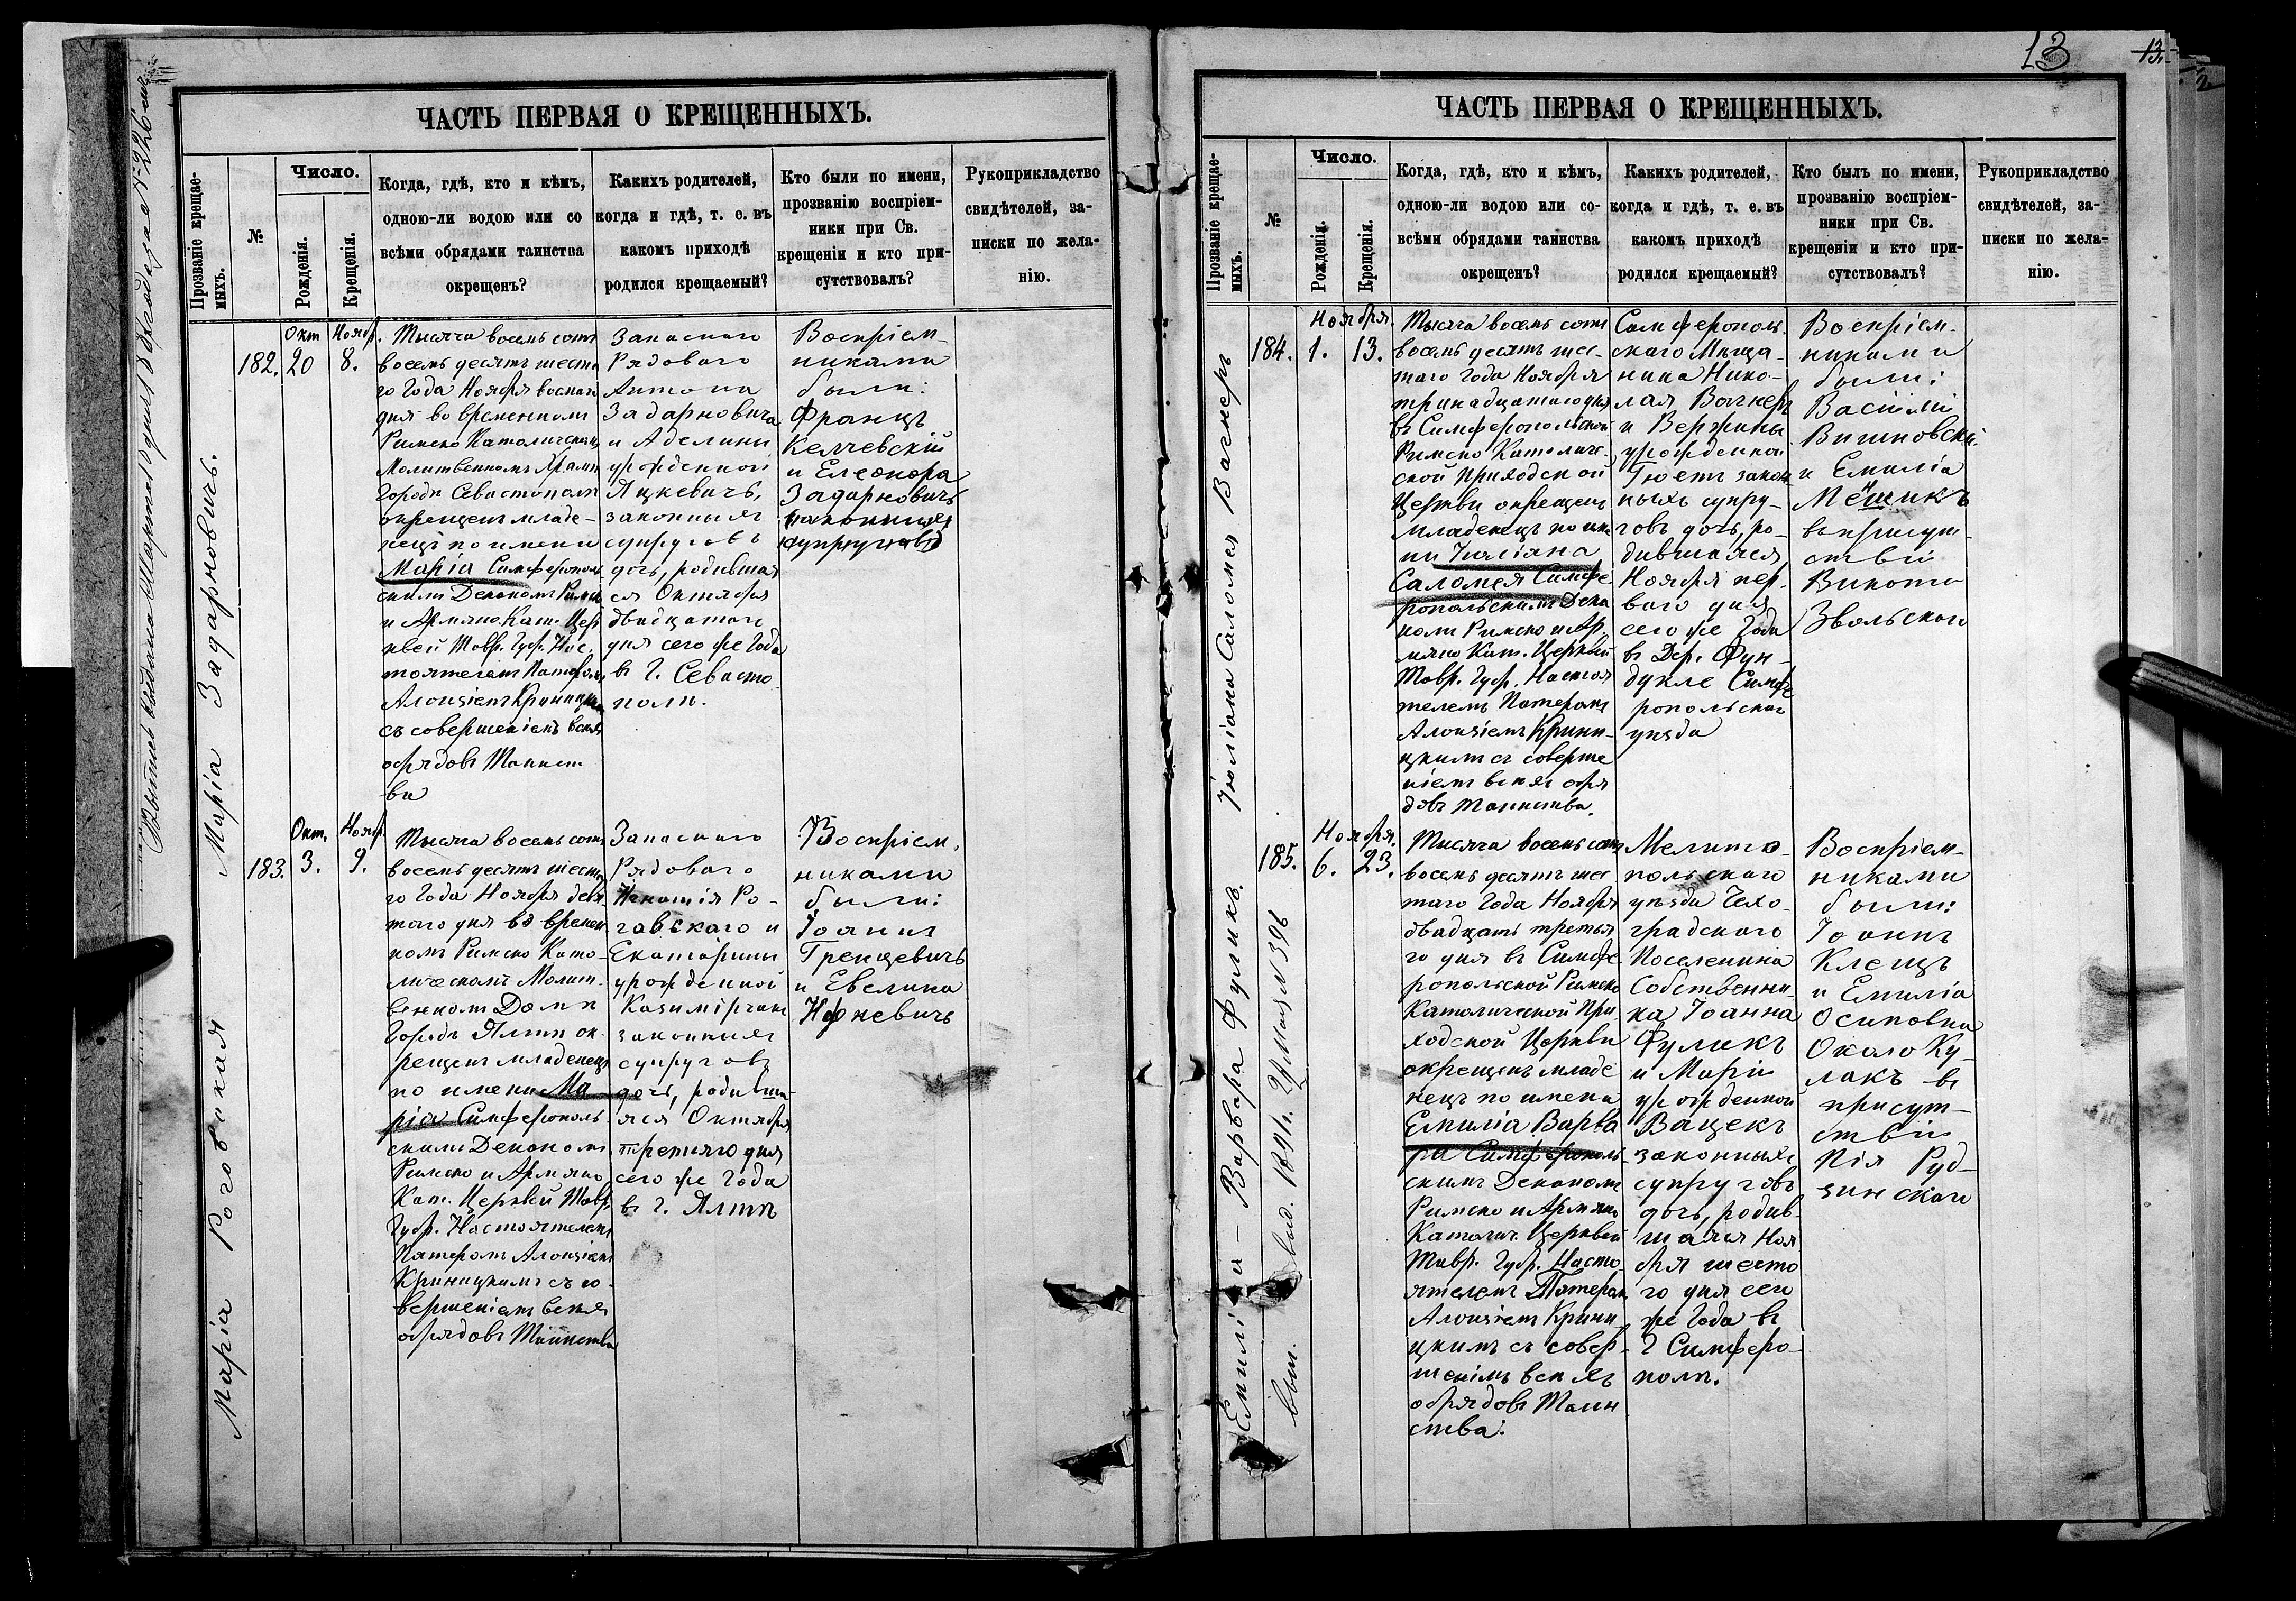 13
13.
ЧАСТЬ ПЕРВАЯ О КРЕЩЕННЫХЪ.
Прозваніе крещае-
мыхъ.
№
Число.
Рожденія.
Крещенія.
Когда, гдѣ, кто и кѣмъ,
одною-ли водою или со
всѣми обрядами таинства
окрещенъ?
Какихъ родителей,
когда и гдѣ, т. е. въ
какомъ приходѣ
родился крещаемый?
Кто были по имени,
прозванію воспріем-
ники при Св.
крещеніи и кто при-
сутствовалъ?
Рукоприкладство
свидѣтелей, за-
писки по жела-
нію.
Марія Задарновичъ.
182.
Окт
20
Ноябр.
8.
Тысяча восемь сотъ
восемь десятъ шесто
го Года Ноября восмаго
дня во временномъ
Римско Католическомъ
Молитвенномъ Храмѣ
Города Севастополя
окрещенъ младе-
нецъ по имени
Марія Симферополь
скимъ Деканомъ Римск
и Армяно Кат. Цер
квей Тавр. Губ. Нас.
тоятелемъ Патеромъ
Алоизіемъ Криницкимъ
съ совершеніемъ всѣхъ
обрядовъ Таинст
ва
Запаснаго
Рядоваго
Антона
Задарновича
и Аделины
урожденной
Яцкевичъ,
законныхъ
супруговъ
дочь, родившая
ся Октября
двадцатаго
дня сего же Года
въ г. Севасто
полѣ.
Воспріем-
никами
были:
Францъ
Келчевскій
и Елеонора
Задарновичъ
законныхъ
супруговъ
Марія Роговская
183.
Окт.
3.
Ноябр.
9.
Тысяча восемь сотъ
восемь десятъ шесто
го Года Ноября девя
таго дня въ времен
номъ Римско Като-
лическомъ Молит-
венномъ Домѣ
Города Ялты ок-
рещенъ младенецъ
по имени Ма-
рія Симферополь
скимъ Деканомъ
Римско и Армяно
Кат. Церквей Тавр.
Губр. Настоятелемъ
Патеромъ Алоизіемъ
Криницкимъ съ со-
вершеніемъ всѣхъ
обрядовъ Таинства
Запаснаго
Рядоваго
Игнатія Ро-
гавскаго и
Екатерины
урожденной
законныхъ
супруговъ
дочь, родивша-
яся Октября
третьяго дня
сего же Года
въ г. Ялтѣ
Воспріем.
никами
были:
Іоаннъ
Гренцевичъ
и Евелина
ЧАСТЬ ПЕРВАЯ О КРЕЩЕННЫХЪ.
Прозваніе крещае-
мыхъ.
№
Число.
Рожденія.
Крещенія.
Когда, гдѣ, кто и кѣмъ,
одною-ли водою или со-
всѣми обрядами таинства
окрещенъ?
Какихъ родителей,
когда и гдѣ, т. е. въ
какомъ приходѣ
родился крещаемый?
Кто былъ по имени,
прозванію воспріем-
ники при Св.
крещеніи и кто при-
сутствовалъ?
Рукоприкладство
свидѣтелей, за-
писки по жела-
нію.
Іюліана Саломея Вагнеръ
184.
Ноября.
1.
13.
Тысяча восемь сотъ
восемь десятъ шес-
таго Года Ноября
тринадцатаго дня
въ Симферопольской
Римско Католиче-
ской Приходской
Церкви окрещенъ
младенецъ по име
ни Іюліана
Саломея Симфе
ропольскимъ Дека
номъ Римско и Ар
мяно Кат. Церквей
Тавр. Губр. Настоя
телемъ Патеромъ
Алоизіемъ Крини-
цкимъ съ соверше
ніемъ всѣхъ обря
довъ Таинства.
Симферополь.
скаго Мѣща-
нина Нико-
лая Вагнеръ
и Вержины
урожденной
Гюетъ закон
ныхъ супру-
говъ дочь, ро-
дившаяся
Ноября пер-
ваго дня
сего же Года
въ Дер. Фун-
дукле Симфе
ропольскаго
уѣзда
Воспріем-
никами
были:
Василій
Вишновскій
и Емилія
въ присут-
ствіи
Викента
Звольскаго
Емилія - Варвара Фуликъ.
№ 396
185.
Ноября.
6.
23.
Тысяча восемь сотъ
восемь десятъ шес
таго Года Ноября
двадцать третья
го дня въ Симфе
ропольской Римско
Католической При
ходской Церкви
окрещенъ младе
нецъ по имени
Емилія Варва
ра Симферополь-
скимъ Деканомъ
Римско и Армяно
Католич. Церквей
Тавр. Губр. Насто-
ятелемъ Патеромъ
Алоизіемъ Крини-
цкимъ съ совер-
шеніемъ всѣхъ
обрядовъ Таин
ства.
Мелито-
польскаго
уѣзда Чехо-
градскаго
Поселенина
Собственни-
ка Іоанна
Фуликъ
и Маріи
урожденной
Вацекъ
законныхъ
супруговъ
дочь, родив-
шаяся Ноя
бря шесто
го дня сего
же Года въ
г Симферо-
полѣ.
Воспріем-
никами
были:
Іоаннъ
Клещъ
и Емилія
Осиповна
Около Ку-
лакъ въ
присут-
ствіи
Пія Руд-
зинскаго